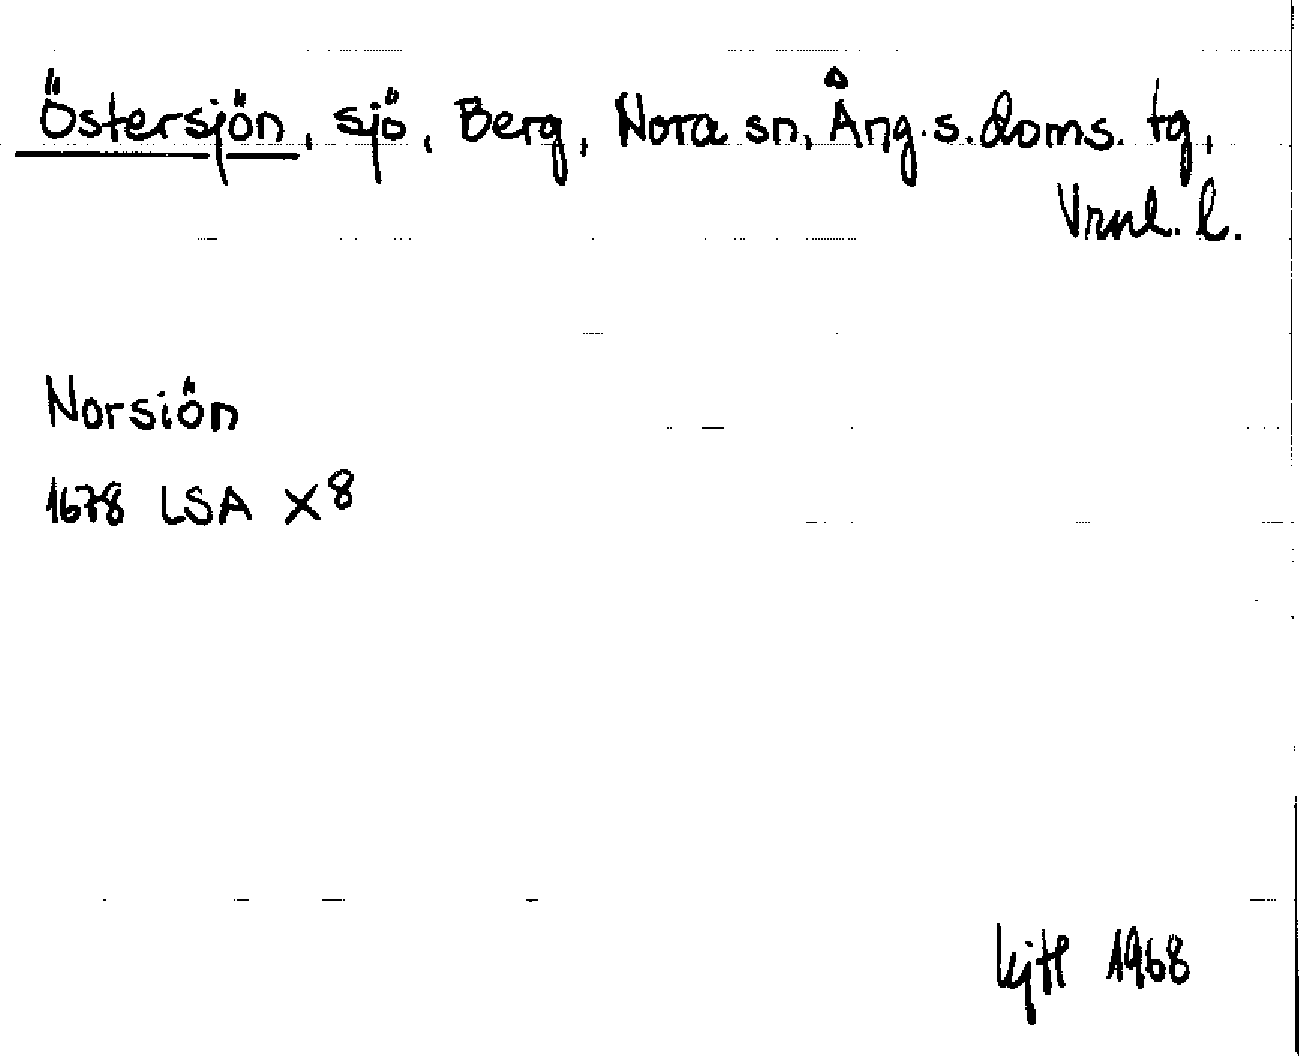 Östersjön, sjö, Berg, Nora sn, Ång. s. doms. tg,
Vrnl. l.
Norsiön
1678 LSA X8
1968